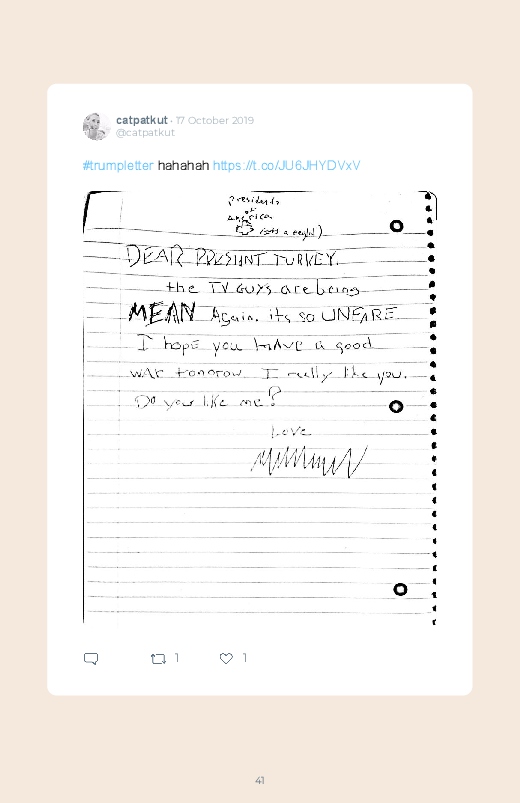 catpatkut · 17 October 2019
@catpatkut
#trumpletter hahahah https://t.co/JU6JHYDVxV
presidents
of
(its a eagle)
DEAR PRESIHNT TURKEY.
the TV GUYS are being
MEAN Again. its so UNFARE
I hope you hAve a good
wAr tomorrow I really like you.
Do you like me?
Love
1 1
41